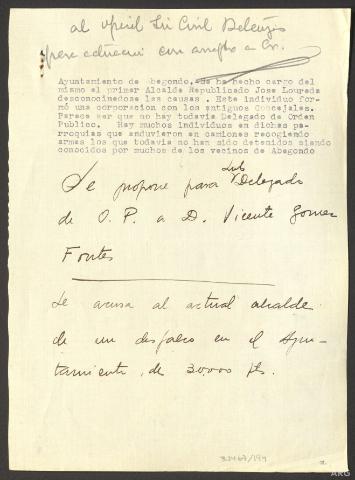 al Oficial Sr. Civil
para actuación con arreglo a
Ayuntamiento de Abegondo. Se ha hecho cargo del
mismo el primer Alcalde Republicado Jose Loureda
desconociendose las causas. Este individuo for-
mó una corporacion con los antiguos Concejales.
Parece ser que no hay todavia Delegado de Orden
Publico. Hay muchos individuos en dichas pa-
rroquias que anduvieron en camiones recogiendo
armas los que todavia no han sido detenidos siendo
conocidos por muchos de los vecinos de Abegondo
Se propone para Sub Delegado
de O. P. a D. Vicente Gomez
Fontes
Se acusa al actual alcalde
de un desfalco en el Ayun-
tamiento, de 30.000 pts.
ARG